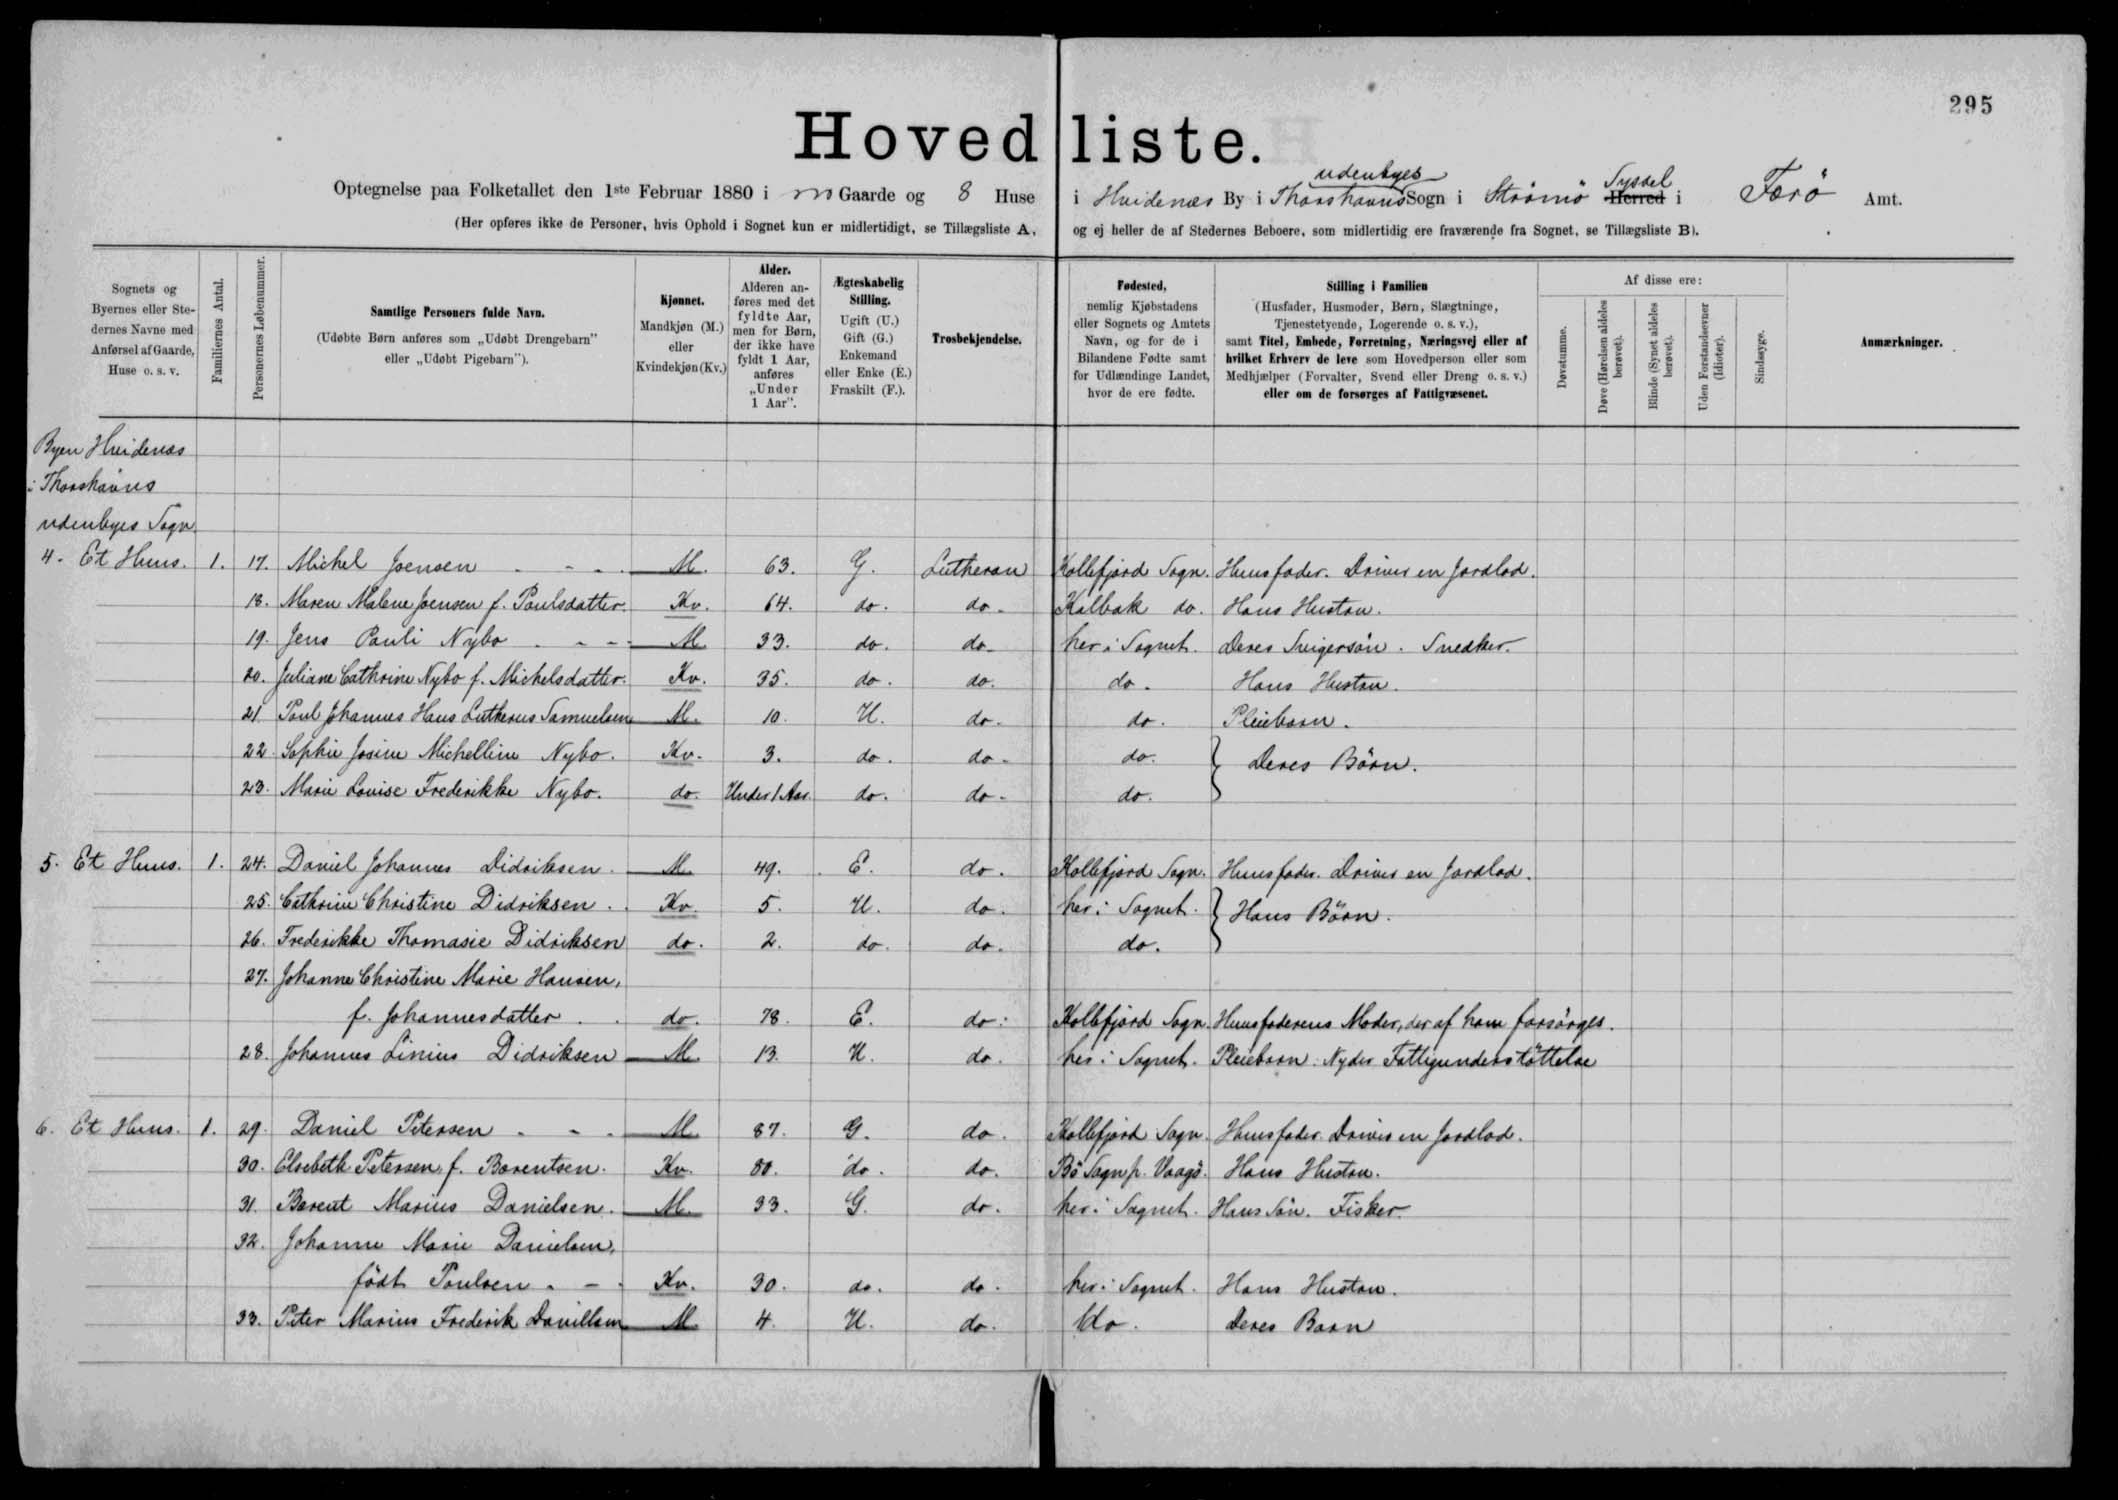 295
Hovedliste.
Optegnelse paa Folketallet den 1ste Februar 1880 i Gaarde og 8 Huse i Hvidenæs By i Thorshavns udenbyes Sogn i Strømø Herred Syssel i Færö Amt.
(Her opføres ikke de Personer, hvis Ophold i Sognet kun er midlertidigt, se Tillægsliste A, og ej heller de af Stedernes Beboere, som midlertidig ere fraværende fra Sognet, se Tillægsliste B).
Sognets og Byernes eller Stedernes Navne med Anførsel af Gaarde, Huse o. s. v.
Familiernes Antal.
Personernes Løbenummer.
Samtlige Personers fulde Navn.
(Udøbte Børn anføres som „Udøbt Drengebarn" eller „Udøbt Pigebarn").
Kjønnet.
Mandkjøn (M.) eller Kvindekjøn (Kv.)
Alder.
Alderen anføres med det fyldte Aar, men for Børn, der ikke have fyldt 1 Aar, anføres „Under 1 Aar".
Ægteskabelig Stilling.
Ugift (U.) Gift (G.) Enkemand eller Enke (E.) Fraskilt (F.).
Trosbekjendelse.
Fødested,
nemlig Kjøbstadens eller Sognets og Amtets Navn, og for de i Bilandene Fødte samt for Udlændinge Landet, hvor de ere fødte.
Stilling i Familien
(Husfader, Husmoder, Børn, Slægtninge, Tjenestetyende, Logerende o. s. v.),
samt Titel, Embede, Forretning, Næringsvej eller af hvilket Erhverv de leve som Hovedperson eller som Medhjælper (Forvalter, Svend eller Dreng o. s. v.) eller om de forsørges af Fattigvæsenet.
Af disse ere:
Døvstumme.
Døve (Hørelsen aldeles berøvet).
Blinde (Synet aldeles berøvet).
Uden Forstandsevner (Idioter).
Sindssyge.
Anmærkninger.
Byen Hvidenæs
i Thorshavns
udenbyes Sogn.
4. Et Huus. 1. 17. Michel Joensen M. 63. G. Lutheran Kollefjord Sogn. Huusfader. Driver en Jordlod.
18. Maren Malene Joensen f. Poulsdatter. Kv. 64. do. do. Kalbak do. Hans Hustru.
19. Jens Pauli Nybo M 33. do. do. her i Sognet. Deres Svigersön. Snedker.
20. Juliane Cathrine Nybo f. Michelsdatter. Kv. 35. do. do. do. Hans Hustru.
21. Poul Johannes Hans Lutherus Samuelsen M. 10. U. do. do. Pleiebarn.
22. Sophie Josine Michelline Nybo. Kv. 3. do. do. do. Deres Börn.
23. Marie Louise Frederikke Nybo. do. Under 1 Aar. do. do. do.
5. Et Huus. 1. 24. Daniel Johannes Didriksen. M. 49. E. do. Kollefjord Sogn. Huusfader. Driver en Jordlod.
25. Cathrine Christine Didriksen. Kv. 5. U. do. her i Sognet. Hans Börn.
26. Frederikke Thomasie Didriksen do. 2. do. do. do.
27. Johanne Christine Marie Hansen,
f. Johannesdatter. do. 78. E. do. Kollefjord Sogn. Huusfaderens Moder, der af ham forsörges.
28. Johannes Linius Didriksen M 13. U. do. her i Sognet. Pleiebarn. Nyder Fattigunderstöttelse
6. Et Huus. 1. 29. Daniel Petersen M. 87. G. do. Kollefjord Sogn. Huusfader. Driver en Jordlod.
30. Elsebeth Petersen, f. Barentsen. Kv. 80. do. do. Bö Sogn p. Vaagö. Hans Hustru.
31. Berent Marius Danielsen. M. 33. G. do. her i Sognet. Hans Sön. Fisker.
32. Johanne Marie Danielsen,
födt Poulsen. Kv. 30. do. do. her i Sognet. Hans Hustru.
33. Peter Marius Frederik Daniellsen M 4. U. do. do. Deres Barn